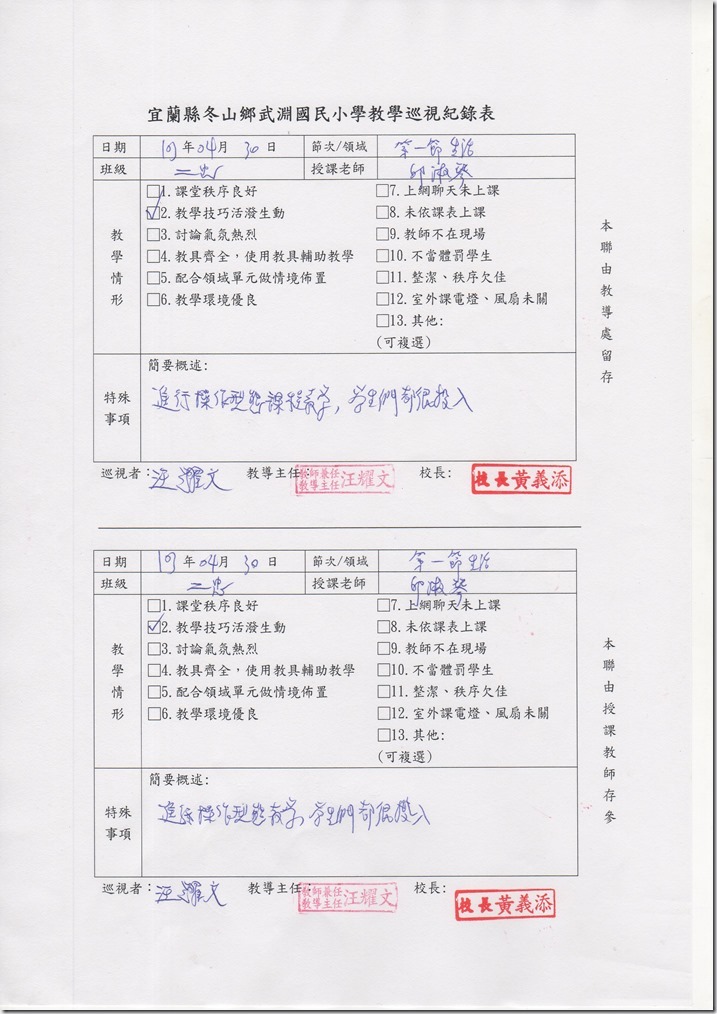 宜蘭縣冬山鄉武淵國民小學教學巡視紀錄表
日期 103年04月30日 節次/領域 第一節生活
班級 二忠 授課老師 邱淑琴
教學情形
□1.課堂秩序良好
☑2.教學技巧活潑生動
□3.討論氣氛熱烈
□4.教具齊全，使用教具輔助教學
□5.配合領域單元做情境佈置
□6.教學環境優良
□7.上網聊天未上課
□8.未依課表上課
□9.教師不在現場
□10.不當體罰學生
□11.整潔、秩序欠佳
□12.室外課電燈、風扇未關
□13.其他:
(可複選)
特殊事項
簡要概述:
進行操作型態課程教學，學生們都很投入
巡視者：汪耀文 教導主任： 教師兼任教導主任汪耀文 校長: 校長黃義添
本聯由教導處留存
日期 103年04月30日 節次/領域 第一節生活
班級 二忠 授課老師 邱淑琴
教學情形
□1.課堂秩序良好
☑2.教學技巧活潑生動
□3.討論氣氛熱烈
□4.教具齊全，使用教具輔助教學
□5.配合領域單元做情境佈置
□6.教學環境優良
□7.上網聊天未上課
□8.未依課表上課
□9.教師不在現場
□10.不當體罰學生
□11.整潔、秩序欠佳
□12.室外課電燈、風扇未關
□13.其他:
(可複選)
特殊事項
簡要概述:
進行操作型態教學，學生們都很投入
巡視者：汪耀文 教導主任： 教師兼任教導主任汪耀文 校長: 校長黃義添
本聯由授課教師存參